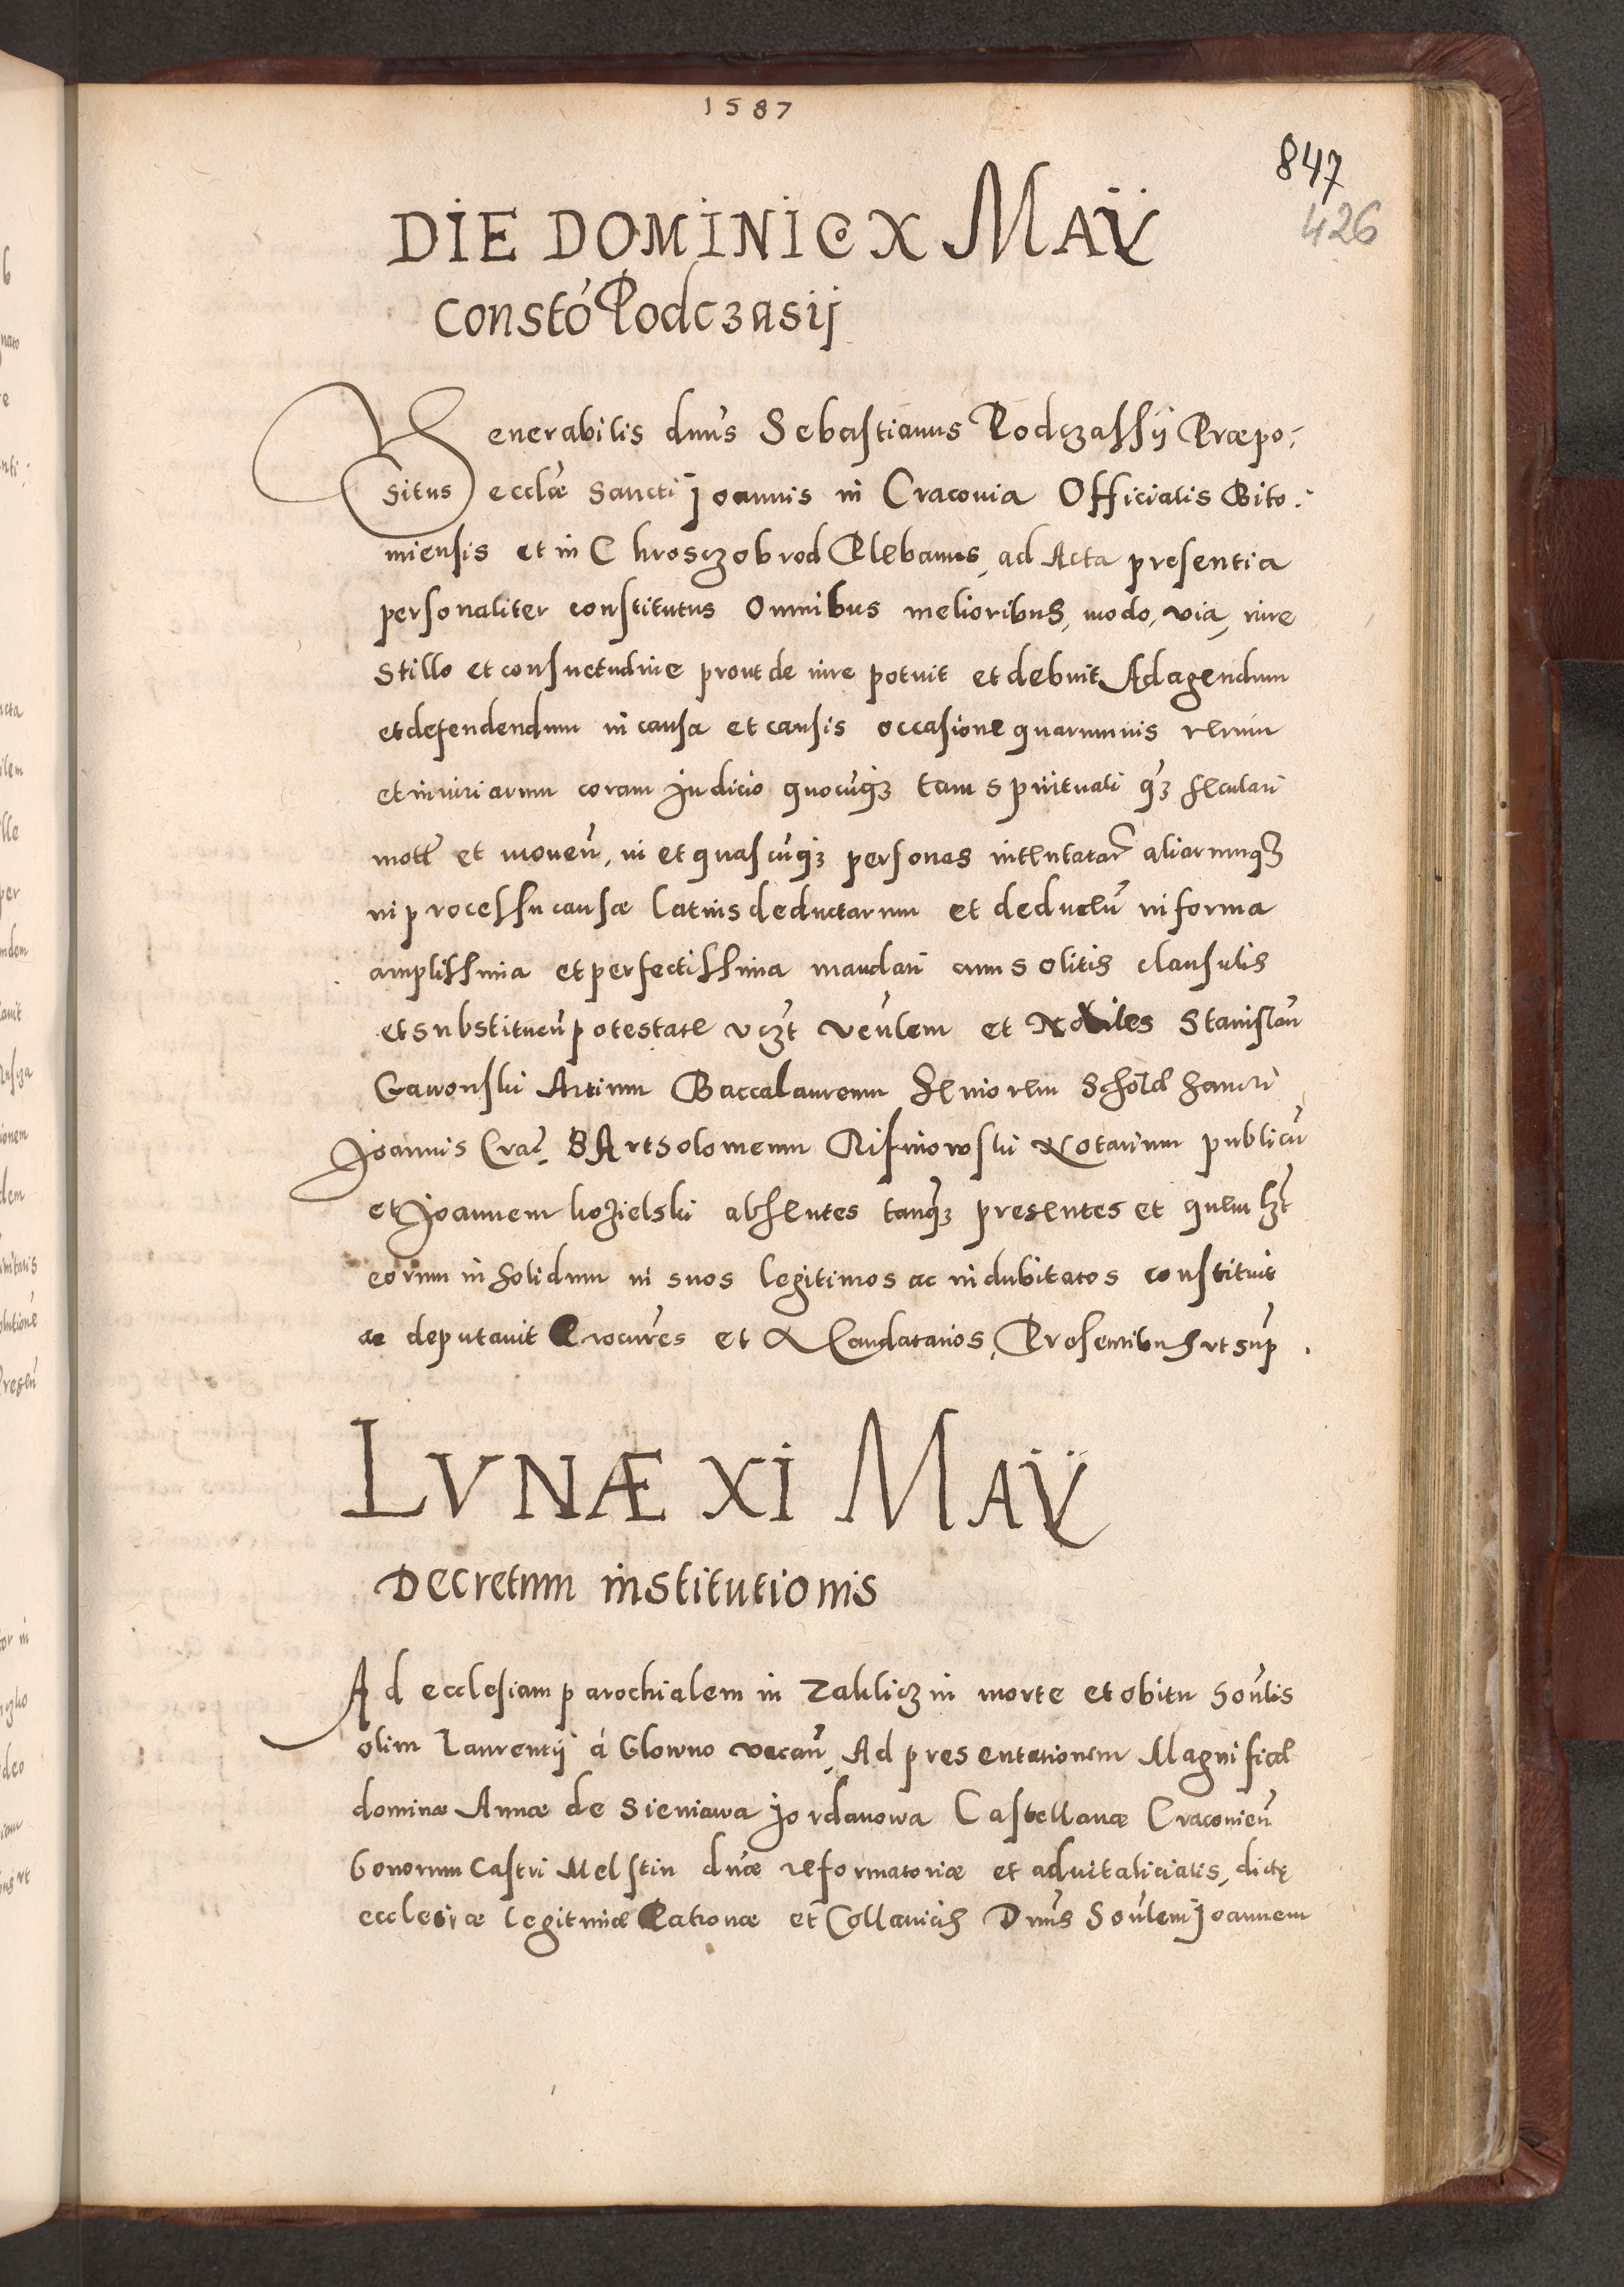 1587
847
426
DIE DOMINIC X MAỸ
Constó Podczasij
Venerabilis dnus Sebastianus Podczassij Præpo:
situs ecclæ Sancti Joannis in Cracouia Officialis Bito:
miensis et in Chrosczobrod Plebanus, ad Acta presentia
personaliter constitutus Omnibus melioribus, modo, via, iure
Stillo et consuetudine prout de iure potuit et debuit Ad agendum
et defendendum in causa et causis occasione quarumuis rerum
et iniuriarum coram Judicio quocuq3 tam spirituali q3 seculari
mott et mouen, in et quascuq3 personas intentatar aliarumq3
in processu causæ latius deductarum et deducen in forma
amplissima et perfectissima mandari cum solitis clausulis
et substituen potestate vczt venlem et Nobiles Stanislau
Gawonski Artium Baccalaureum Seniorem Scholæ Sancti
Joannis Crac. BArtholomeum Notarium publicu
et Joannem kozielski absentes tanq3 presentes et quemlzt
eorum in solidum in suos legitimos ac indubitatos constituit
ac deputauit Procures et Mandatarios, Presentibus vt sup.
LVNÆ XI MAỸ
Decretum institutionis
Ad ecclesiam parochialem in Zakliczin morte et obitu honlis
olim Laurentij á Glowno vacan, Ad presentationem Magnificæ
dominæ Annæ de Sieniawa Jordanowa Castellanæ Cracouien
bonorum Castri Melstin dnæ reformatoriæ et aduitalicialis, dictę
ecclesiæ legitimæ Patronæ et Collatricis Dnus Honlem Joannem